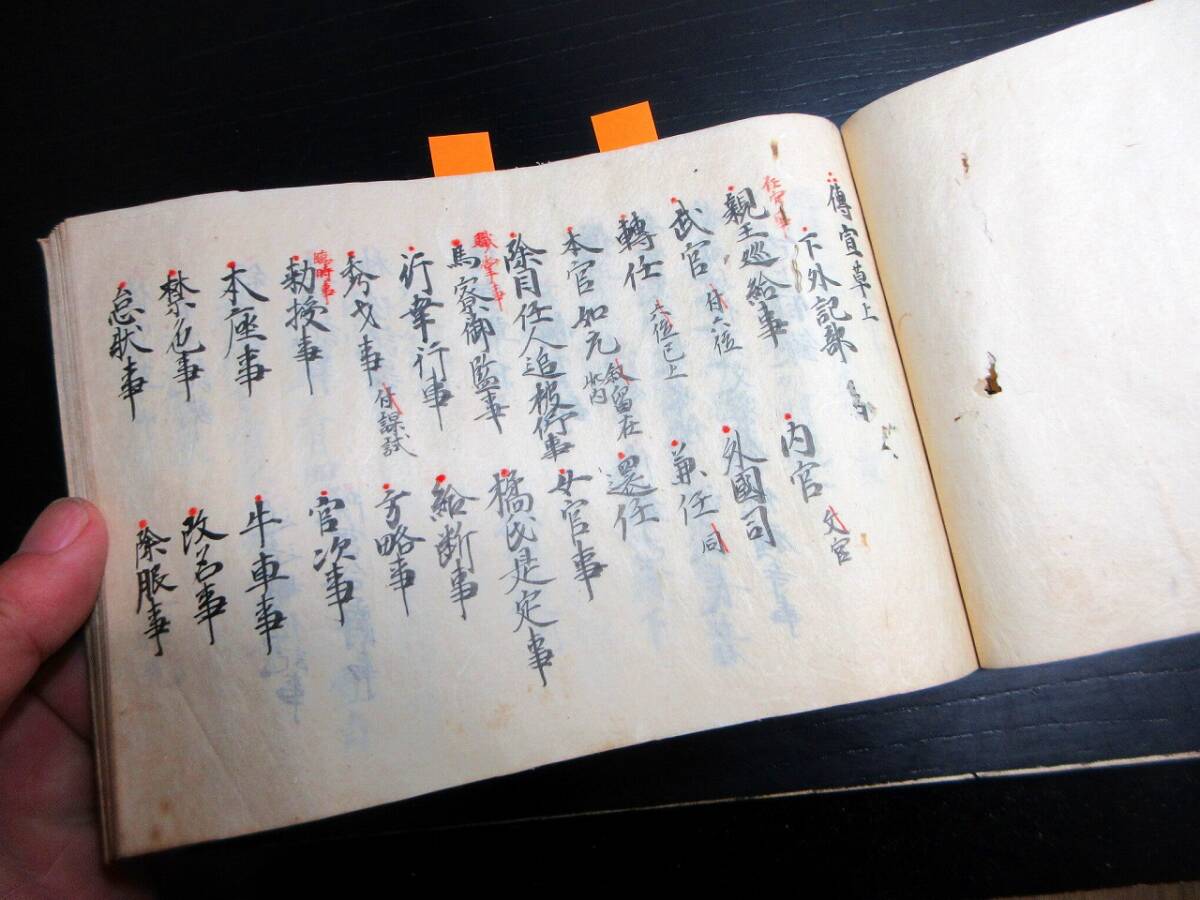 傳宣草上
下外記部
任官事
親王巡給事 内官 文官
武官 付六位 外國司
轉任 六位已上 兼任 同
本官如元 敘留在此内 還任
除目任人追被停事 女官事
職掌事
馬寮御監事 橘氏是定事
行幸行事 給断事
秀才事 付課試 方略事
臨時事
勅授事 官次事
本座事 牛車事
禁色事 改名事
怠状事 除服事